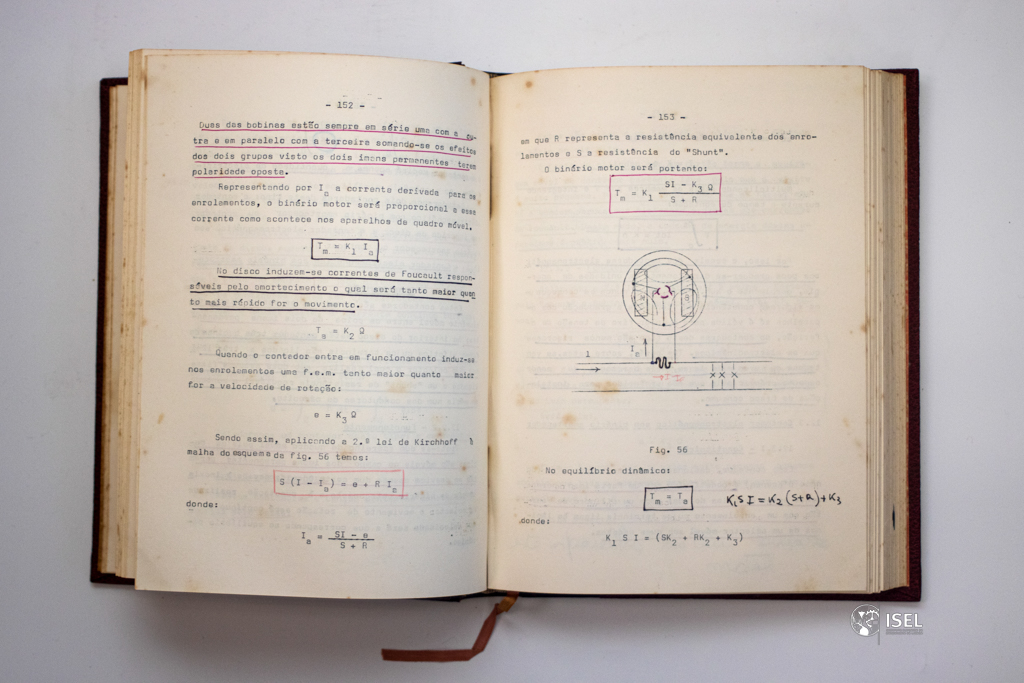 - 152 -
Duas das bobinas estão sempre em série uma com a ou-
tra e em paralelo com a terceira somando-se os efeitos
dos dois grupos visto os dois imans permanentes terem
polaridade oposta.
Representando por Ia a corrente derivada para os
enrolamentos, o binário motor será proporcional a essa
corrente como acontece nos aparelhos de quadro móvel.
Tm = K1 Ia
No disco induzem-se correntes de Foucault respon-
sáveis pelo amortecimento o qual será tanto maior quan
to mais rápido for o movimento.
Ta = K2 Ω
Quando o contador entra em funcionamento induz-se
nos enrolamentos uma f.e.m. tanto maior quanto maior
for a velocidade de rotação:
e = K3 Ω
Sendo assim, aplicando a 2.ª lei de Kirchhoff à
malha do esquema da fig. 56 temos:
S (I - Ia) = e + R Ia
donde:
Ia = SI - e / S + R
- 153 -
em que R representa a resistência equivalente dos enro-
lamentos e S a resistência do "Shunt".
O binário motor será portanto:
Tm = K1 SI - K3 Ω / S + R
I
Ia
Fig. 56
No equilíbrio dinâmico:
Tm = Ta
K1 S I = K2 (S+R) + K3
donde:
K1 S I = (SK2 + RK2 + K3)
ISEL